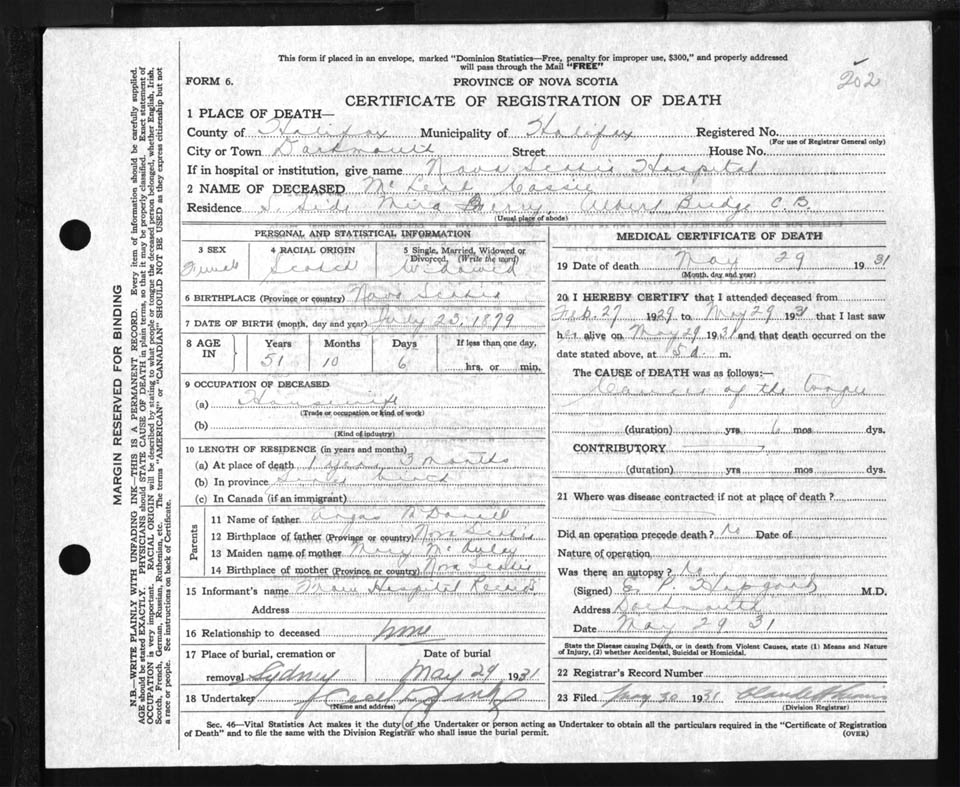 This form if placed in an envelope, marked "Dominion Statistics—Free, penalty for improper use, $300," and properly addressed
will pass through the Mail "FREE"
202
FORM 6.
PROVINCE OF NOVA SCOTIA
CERTIFICATE OF REGISTRATION OF DEATH
1 PLACE OF DEATH—
County of Halifax Municipality of Halifax Registered No.
(For use of Registrar General only)
City or Town Dartmouth Street House No.
If in hospital or institution, give name Nova Scotia Hospital
2 NAME OF DECEASED McLean Cassie
Residence S. Side Mira Ferry Albert Bridge C.B.
(Usual place of abode)
PERSONAL AND STATISTICAL INFORMATION
3 SEX 4 RACIAL ORIGIN 5 Single, Married, Widowed or
Divorced, (Write the word)
Female Scotch Widowed
6 BIRTHPLACE (Province or country) Nova Scotia
7 DATE OF BIRTH (month, day and year) July 23, 1879
8 AGE IN Years Months Days If less than one day,
51 10 6 hrs. or min.
9 OCCUPATION OF DECEASED
(a) Housewife
(Trade or occupation or kind of work)
(b)
(Kind of industry)
10 LENGTH OF RESIDENCE (in years and months)
(a) At place of death 3 months
(b) In province
(c) In Canada (if an immigrant)
Parents
11 Name of father Angus McDonald
12 Birthplace of father (Province or country) Nova Scotia
13 Maiden name of mother Mary McAulay
14 Birthplace of mother (Province or country) Nova Scotia
15 Informant's name From Hospital Records
Address
16 Relationship to deceased none
17 Place of burial, cremation or Date of burial
removal Sydney May 29 1931
18 Undertaker
(Name and address)
MEDICAL CERTIFICATE OF DEATH
19 Date of death May 29 1931
(Month, day and year)
20 I HEREBY CERTIFY that I attended deceased from
Feb. 27 1929 to May 29 1931 that I last saw
her alive on May 29 1931 and that death occurred on the
date stated above, at 5 a. m.
The CAUSE of DEATH was as follows:—
Cancer of the tongue
(duration) yrs 6 mos dys.
CONTRIBUTORY
(duration) yrs mos dys.
21 Where was disease contracted if not at place of death?
Did an operation precede death? No Date of
Nature of operation
Was there an autopsy? No
(Signed) E. P. M.D.
Address Dartmouth
Date May 29 31
State the Disease causing Death, or in death from Violent Causes, state (1) Means and Nature
of Injury, (2) whether Accidental, Suicidal or Homicidal.
22 Registrar's Record Number
23 Filed May 30 1931
(Division Registrar)
Sec. 46—Vital Statistics Act makes it the duty of the Undertaker or person acting as Undertaker to obtain all the particulars required in the "Certificate of Registration
of Death" and to file the same with the Division Registrar who shall issue the burial permit.
(OVER)
MARGIN RESERVED FOR BINDING
N.B.—WRITE PLAINLY WITH UNFADING INK—THIS IS A PERMANENT RECORD. Every item of information should be carefully supplied.
AGE should be stated EXACTLY. PHYSICIANS should STATE CAUSE OF DEATH in plain terms, so that it may be properly classified. Exact statement of
OCCUPATION is very important. RACIAL ORIGIN will be described by stating to what people or tongue the deceased person belonged, whether English, Irish,
Scotch, French, German, Russian, Ruthenian, etc. The terms "AMERICAN" or "CANADIAN" SHOULD NOT BE USED as they express citizenship but not
a race or people. See instructions on back of Certificate.